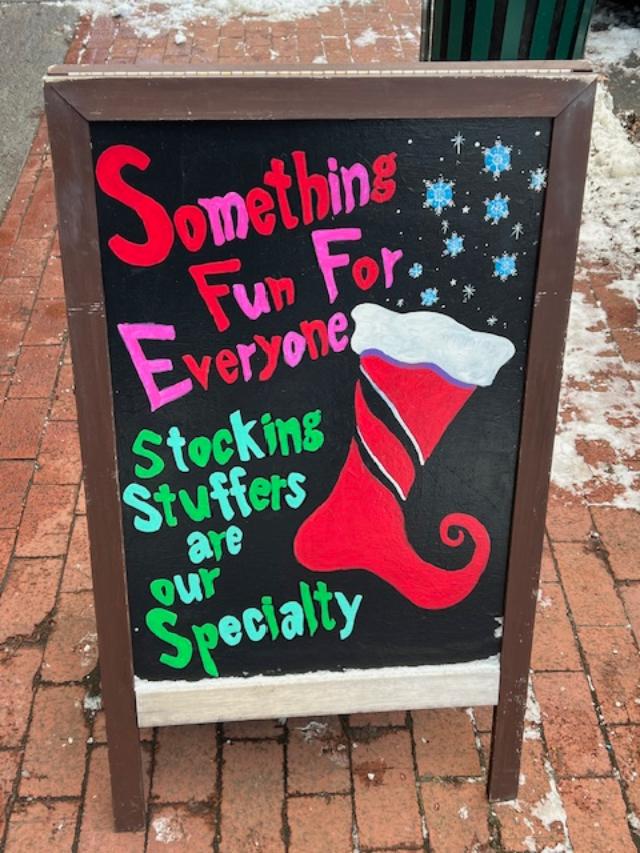 Something
Fun For
Everyone
Stocking
Stuffers
are
our
Specialty